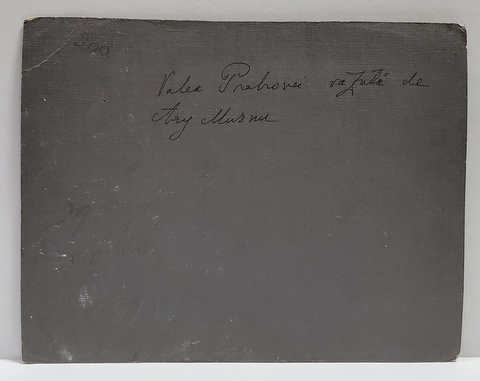 300
Valea Prahovei vazută de
Ary Murnu